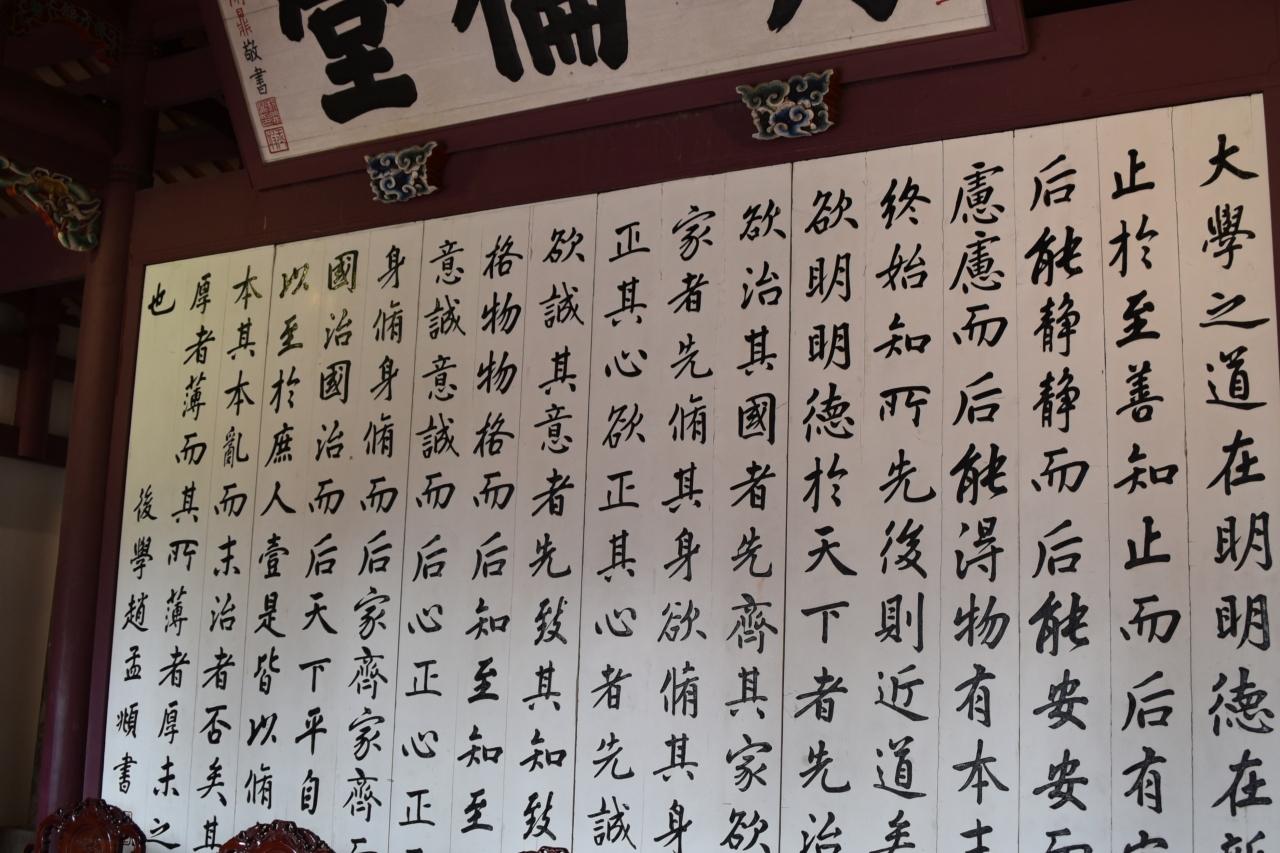 倫堂
鼎敬書
大學之道在明明德在
止於至善知止而后有
后能静静而后能安安而
慮慮而后能得物有本末
終始知所先後則近道矣
欲明明德於天下者先治
欲治其國者先齊其家欲
家者先脩其身欲脩其身
正其心欲正其心者先誠
欲誠其意者先致其知致
格物物格而后知至知至
意誠意誠而后心正心正
身脩身脩而后家齊家齊
國治國治而后天下平自
以至於庶人壹是皆以脩
本其本亂而末治者否矣其
厚者薄而其所薄者厚未之
也
後學趙孟頫書